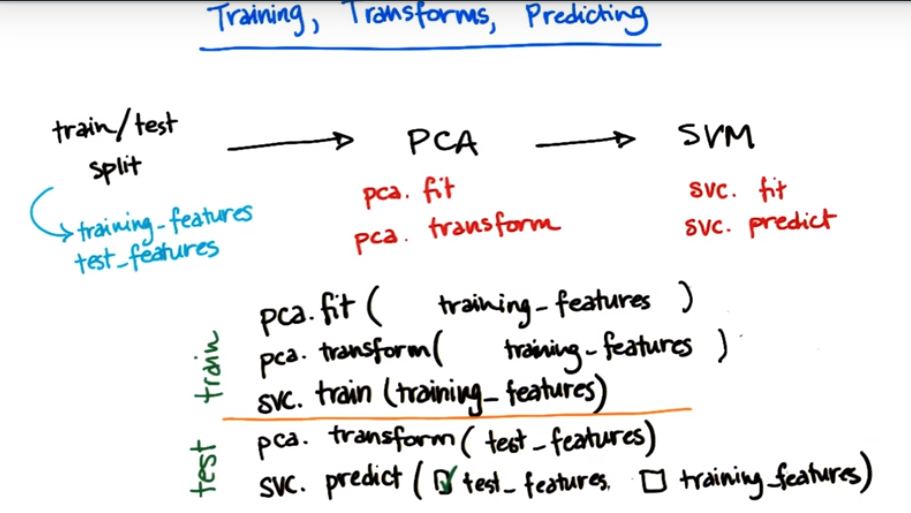 Training, Transforms, Predicting
train/test split
PCA
SVM
training_features
test_features
pca. fit
pca. transform
svc. fit
svc. predict
train
pca.fit ( training_features )
pca. transform( training_features )
svc. train (training_features)
test
pca. transform( test_features)
svc. predict ( ☑ test_features, ☐ training_features)